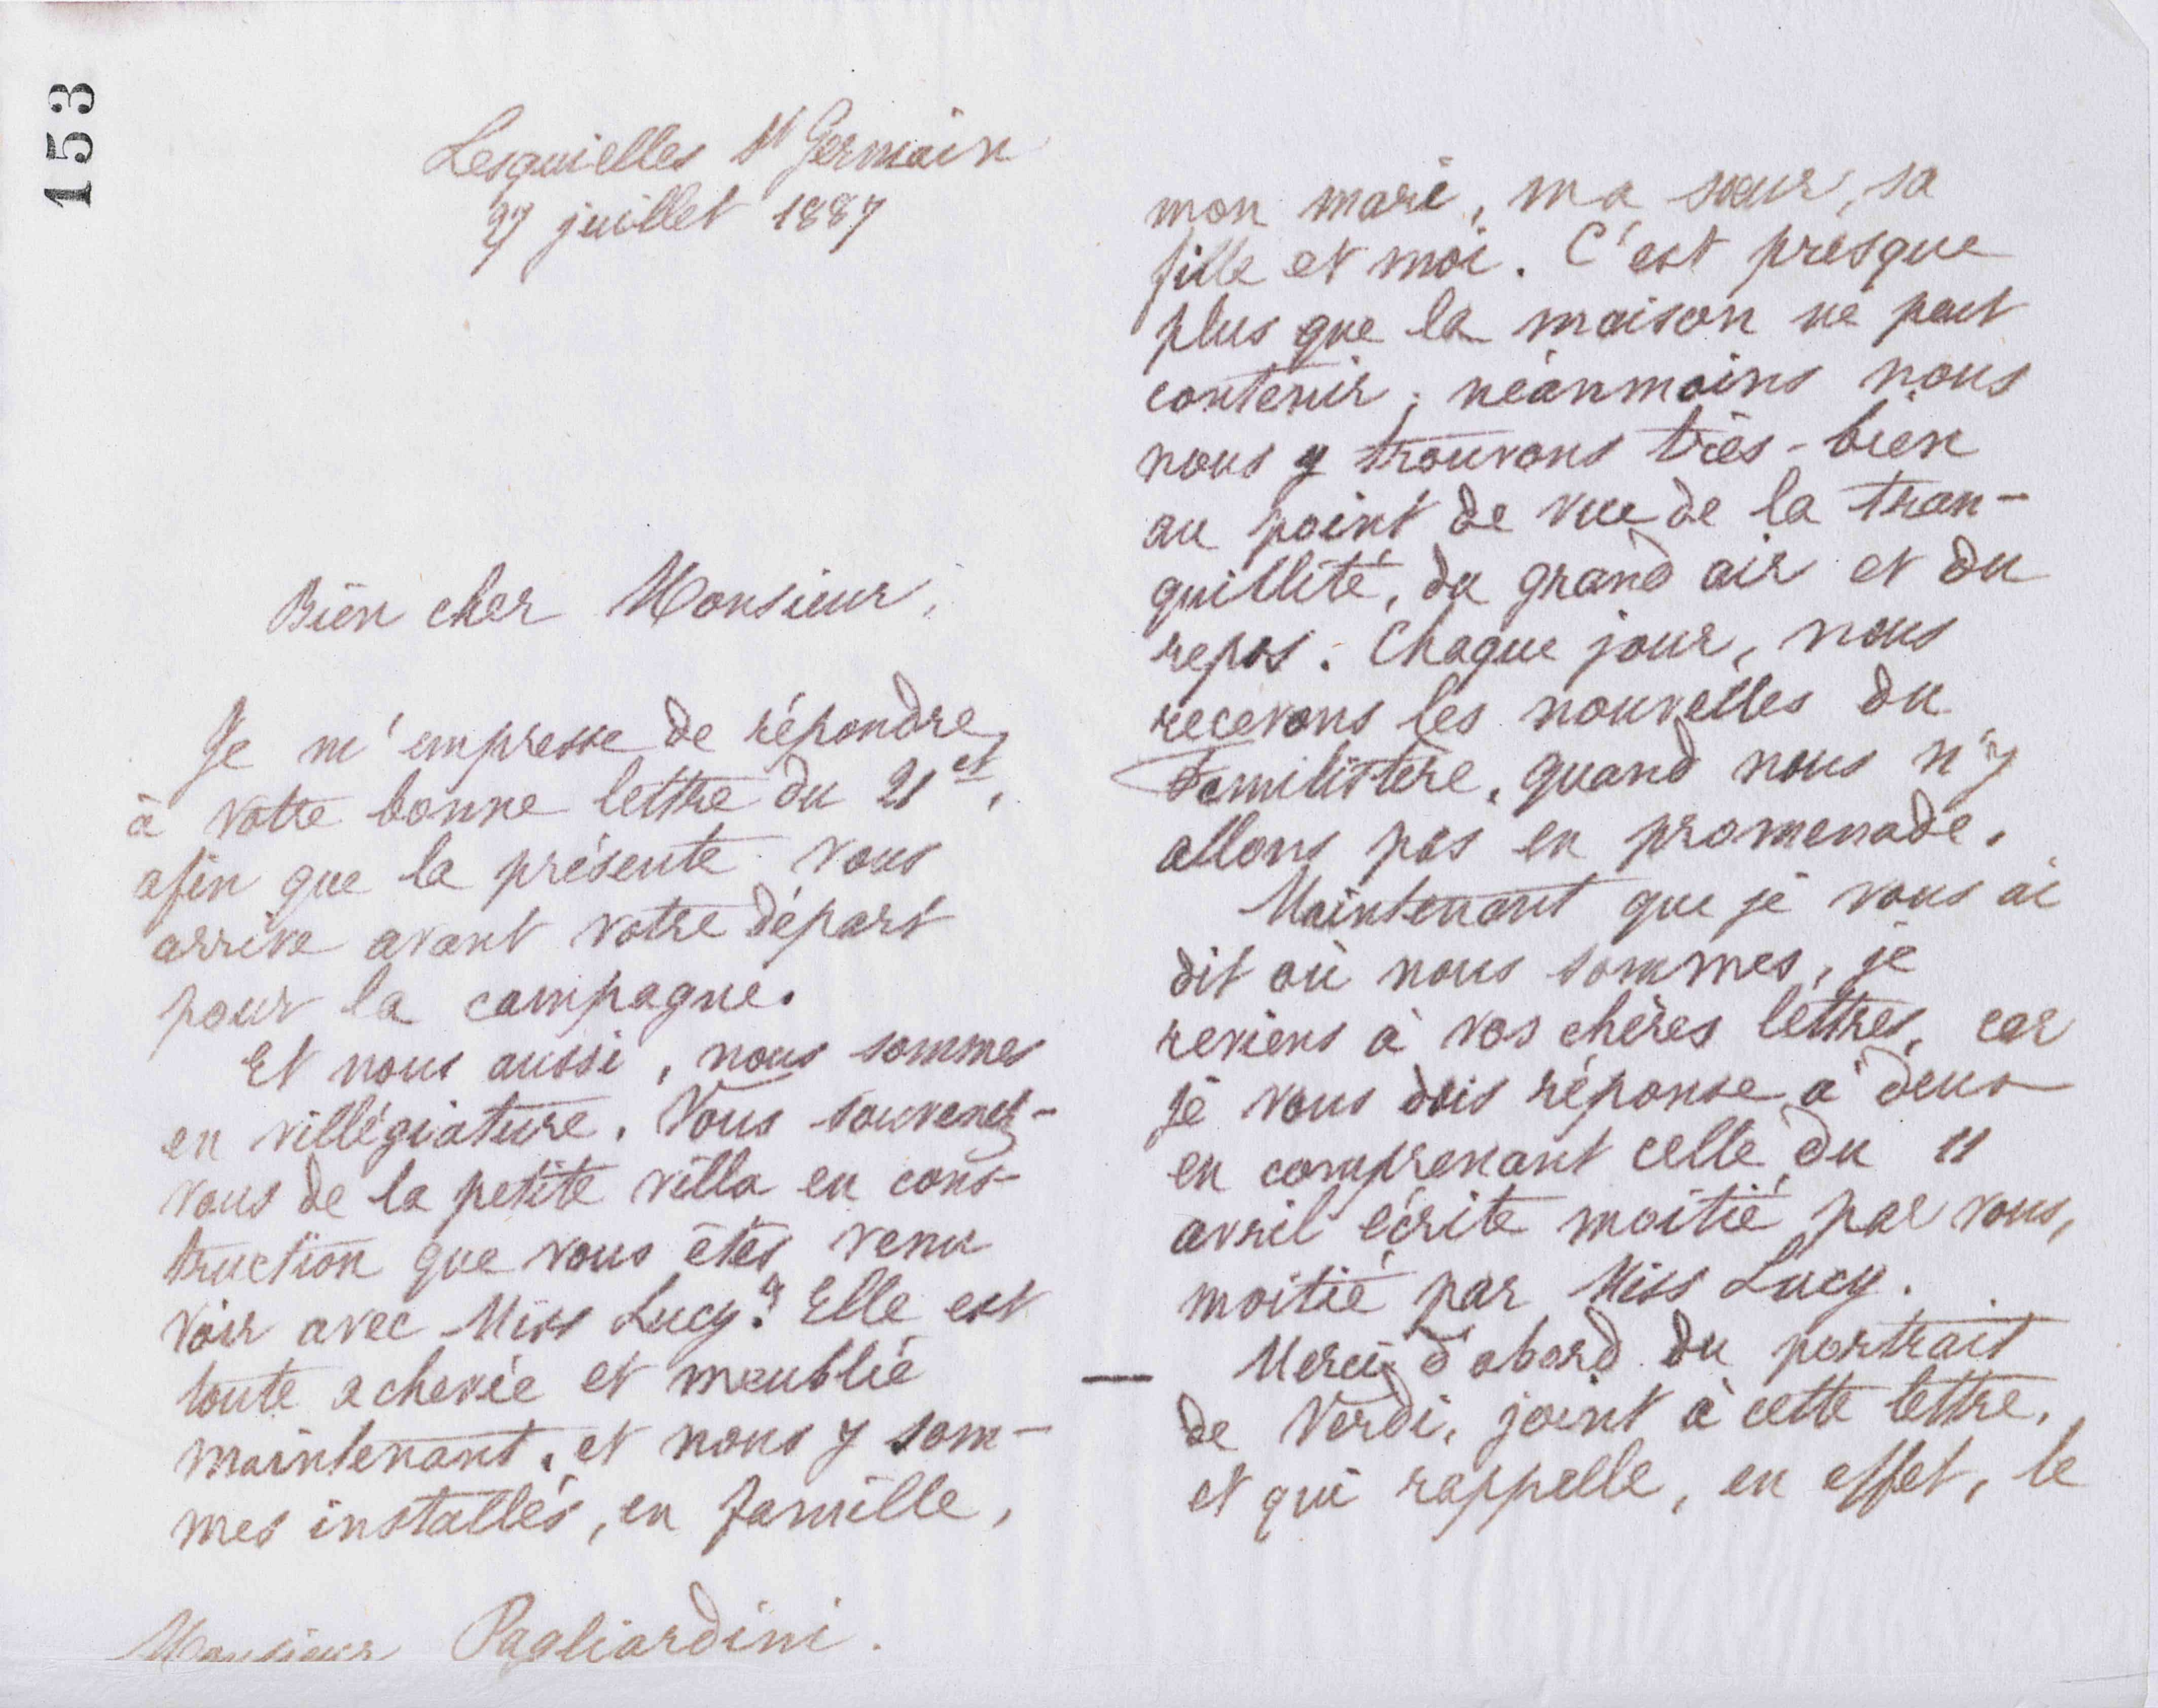 153
Lesquielles St Germain
27 juillet 1887
Bien cher Monsieur,
Je m'empresse de répondre
à votre bonne lettre du 21 ct,
afin que la présente vous
arrive avant votre départ
pour la campagne.
Et nous aussi, nous sommes
en villégiature. Vous souvenez-
vous de la petite villa en cons-
truction que vous êtes venu
voir avec Miss Lucy? Elle est
toute achevée et meublée
maintenant, et nous y som-
mes installés, en famille,
Monsieur Pagliardini.
mon mari, ma sœur, sa
fille et moi. C'est presque
plus que la maison ne peut
contenir; néanmoins nous
nous y trouvons très-bien
au point de vue de la tran-
quillité, du grand air et du
repos. Chaque jour, nous
recevons les nouvelles du
Familistère, quand nous n'y
allons pas en promenade.
Maintenant que je vous ai
dit où nous sommes, je
reviens à vos chères lettres, car
je vous dois réponse à deux
en comprenant celle du 11
avril écrite moitié par vous,
moitié par Miss Lucy.
— Merci d'abord du portrait
de Verdi, joint à cette lettre,
et qui rappelle, en effet, le